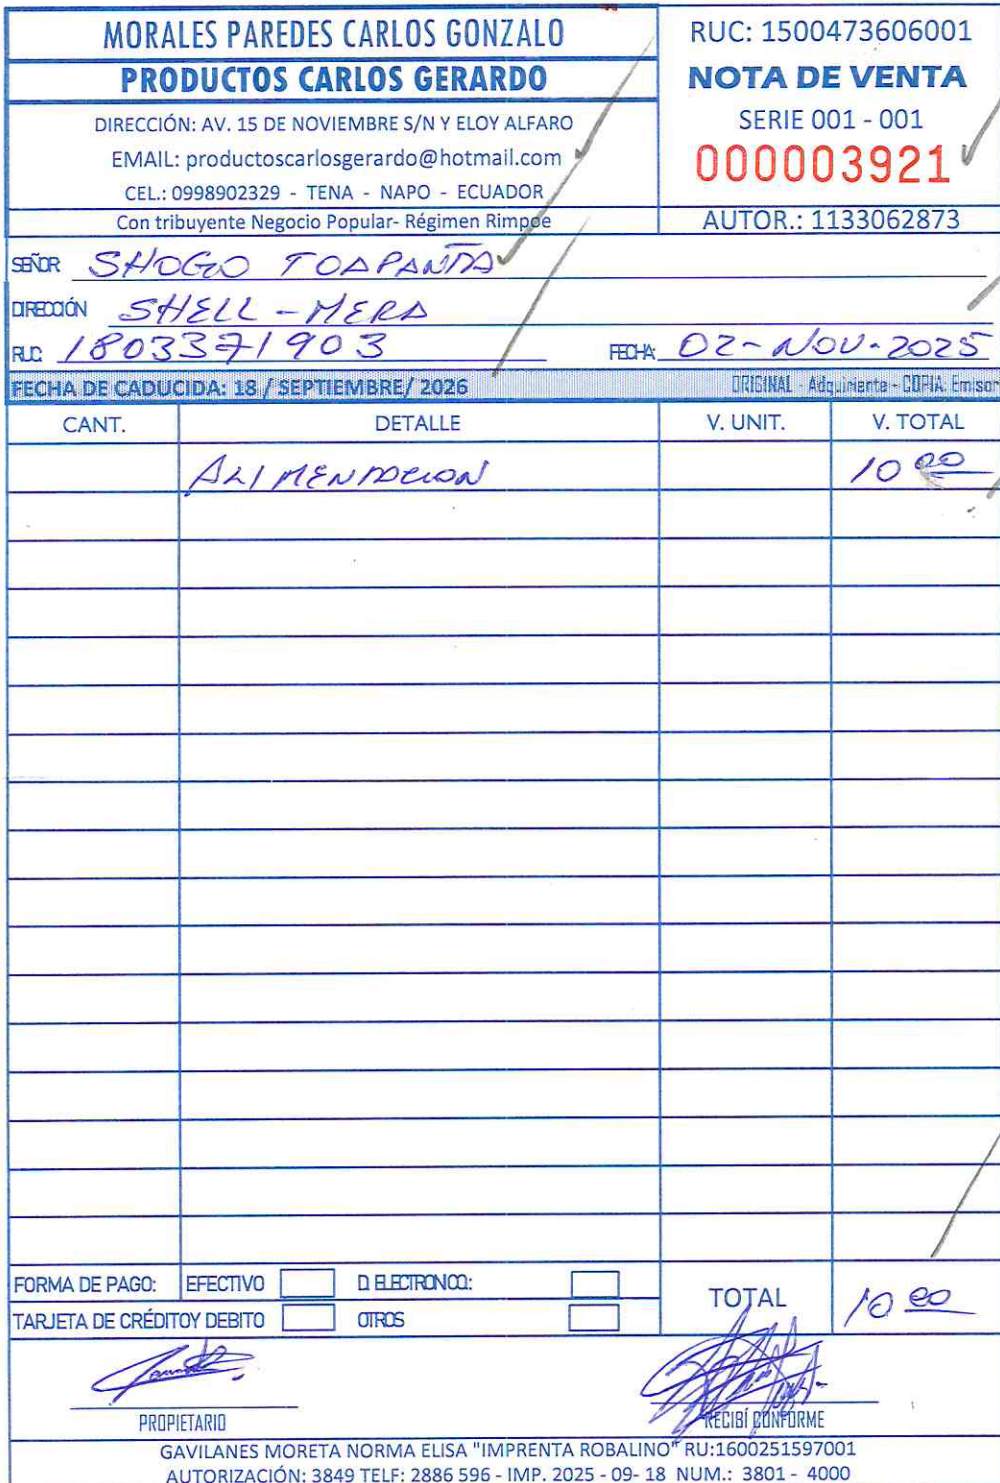 MORALES PAREDES CARLOS GONZALO
PRODUCTOS CARLOS GERARDO
DIRECCIÓN: AV. 15 DE NOVIEMBRE S/N Y ELOY ALFARO
EMAIL: productoscarlosgerardo@hotmail.com
CEL.: 0998902329 - TENA - NAPO - ECUADOR
Con tribuyente Negocio Popular- Régimen Rimpde
RUC: 1500473606001
NOTA DE VENTA
SERIE 001 - 001
000003921
AUTOR.: 1133062873
SEÑOR SHOGO TOAPANTA
DIRECCIÓN SHELL - MERA
RUC: 1803371903 FECHA: 02-NOV-2025
FECHA DE CADUCIDA: 18 / SEPTIEMBRE/ 2026 ORIGINAL - Adquiriente - COPIA: Emisor
CANT. DETALLE V. UNIT. V. TOTAL
ALIMENTACION 10 00
FORMA DE PAGO: EFECTIVO D. ELECTRONCO:
TARJETA DE CRÉDITOY DEBITO OTROS
TOTAL 10 00
PROPIETARIO RECIBÍ CONFORME
GAVILANES MORETA NORMA ELISA "IMPRENTA ROBALINO" RU:1600251597001
AUTORIZACIÓN: 3849 TELF: 2886 596 - IMP. 2025 - 09- 18 NUM.: 3801 - 4000